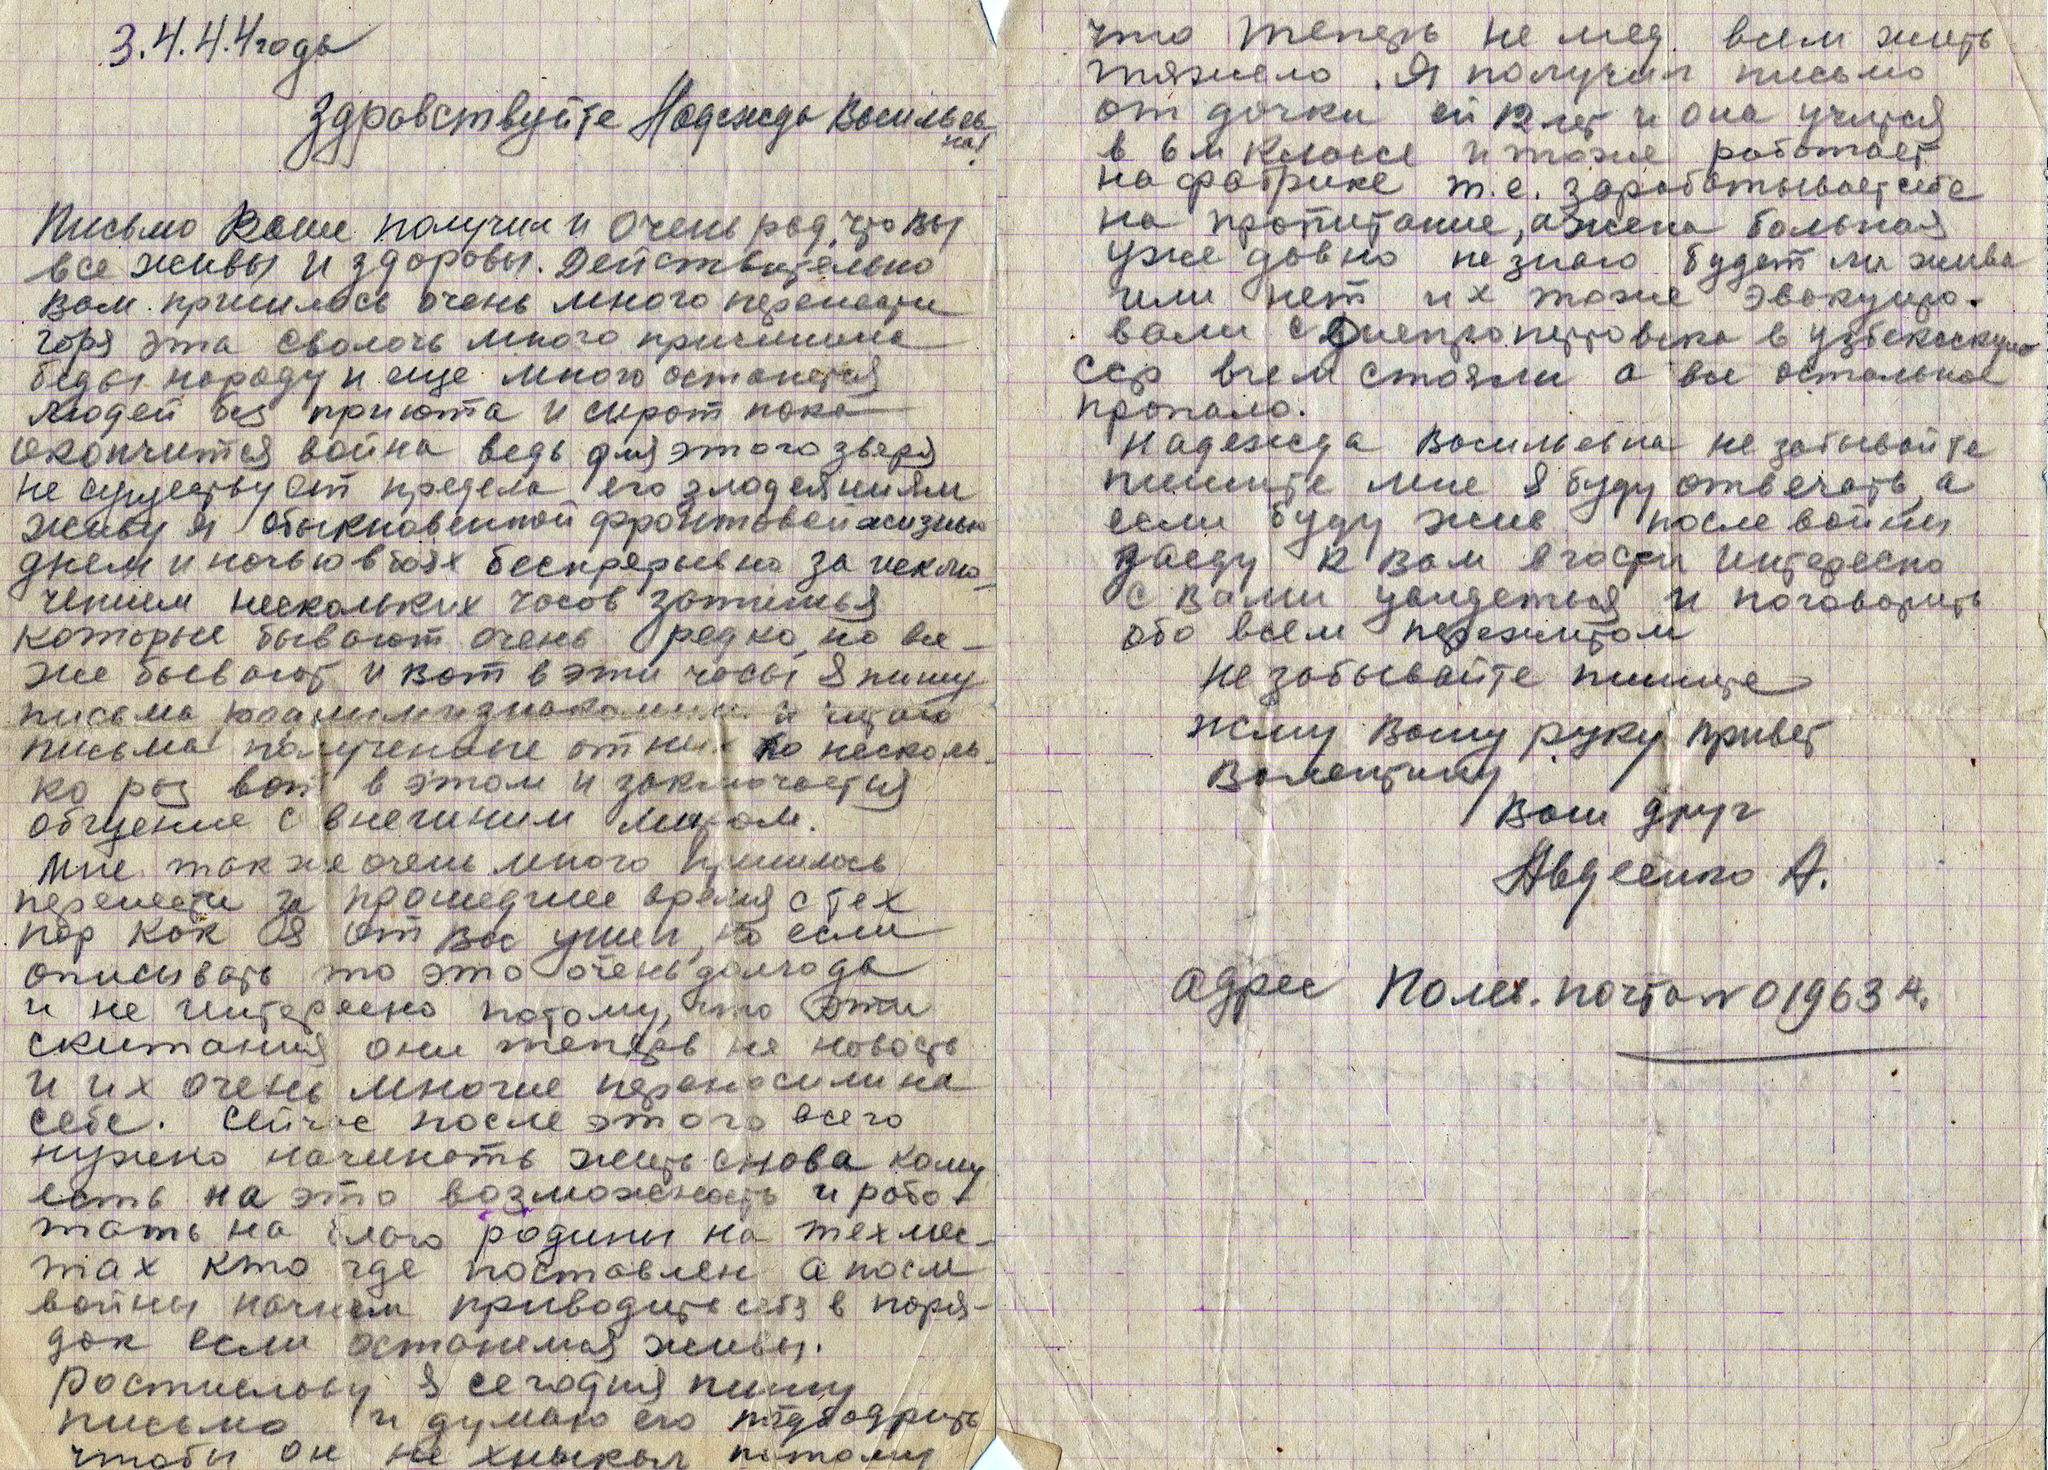 3.4.44 года
Здравствуйте Надежда Василь<ев->
на!
Письмо Ваше получил и очень рад, что Вы
все живы и здоровы. Действительно
Вам пришлось очень много перенести
горя эта сволочь много причинила
беды народу и еще много останется
людей без приюта и сирот пока
окончится война ведь для этого зверя
не существует предела его злодеяниям
живу я обыкновенной фронтовой жизнью
днем и ночью в боях беспрерывно за исклю-
чением нескольких часов затишья
которые бывают очень редко, но все-
же бывают и вот в эти часы я пишу
письма родным и знакомым и читаю
письма полученные от них по несколь-
ко раз вот в этом и заключается
общение с внешним миром.
Мне также очень много пришлось
перенести за прошедшее время с тех
пор как я от Вас ушел, но если
описывать то это очень долго да
и не интересно потому, что эти
скитания они теперь не новость
и их очень многие переносили на
себе. Сейчас после этого всего
нужно начинать жить снова кому
есть на это возможность и рабо-
тать на благо родины на тех мес-
тах кто где поставлен а после
войны начнем приводить себя в поря-
док если останемся живы.
Ростиславу я сегодня пишу
письмо и думаю его подбодрить
чтобы он не хныкал потому
что теперь не мед. всем жить
тяжело. Я получил письмо
от дочки ей 12 лет и она учится
в 6м классе и тоже работает
на фабрике т.е. зарабатывает себе
на пропитание, а жена больная
уже давно не знаю будет ли жива
или нет их тоже эвакуиро-
вали с Днепропетровска в Узбекскую
ССР в чем стояли а все остальное
пропало.
Надежда Васильевна не забывайте
пишите мне я буду отвечать, а
если буду жив после войны
заеду к Вам в гости интересно
с Вами увидеться и поговорить
обо всем пережитом
Не забывайте пишите
жму Вашу руку привет
Валентину
Ваш друг
Авдеенко А.
адрес Полев. почта № 01963 А.